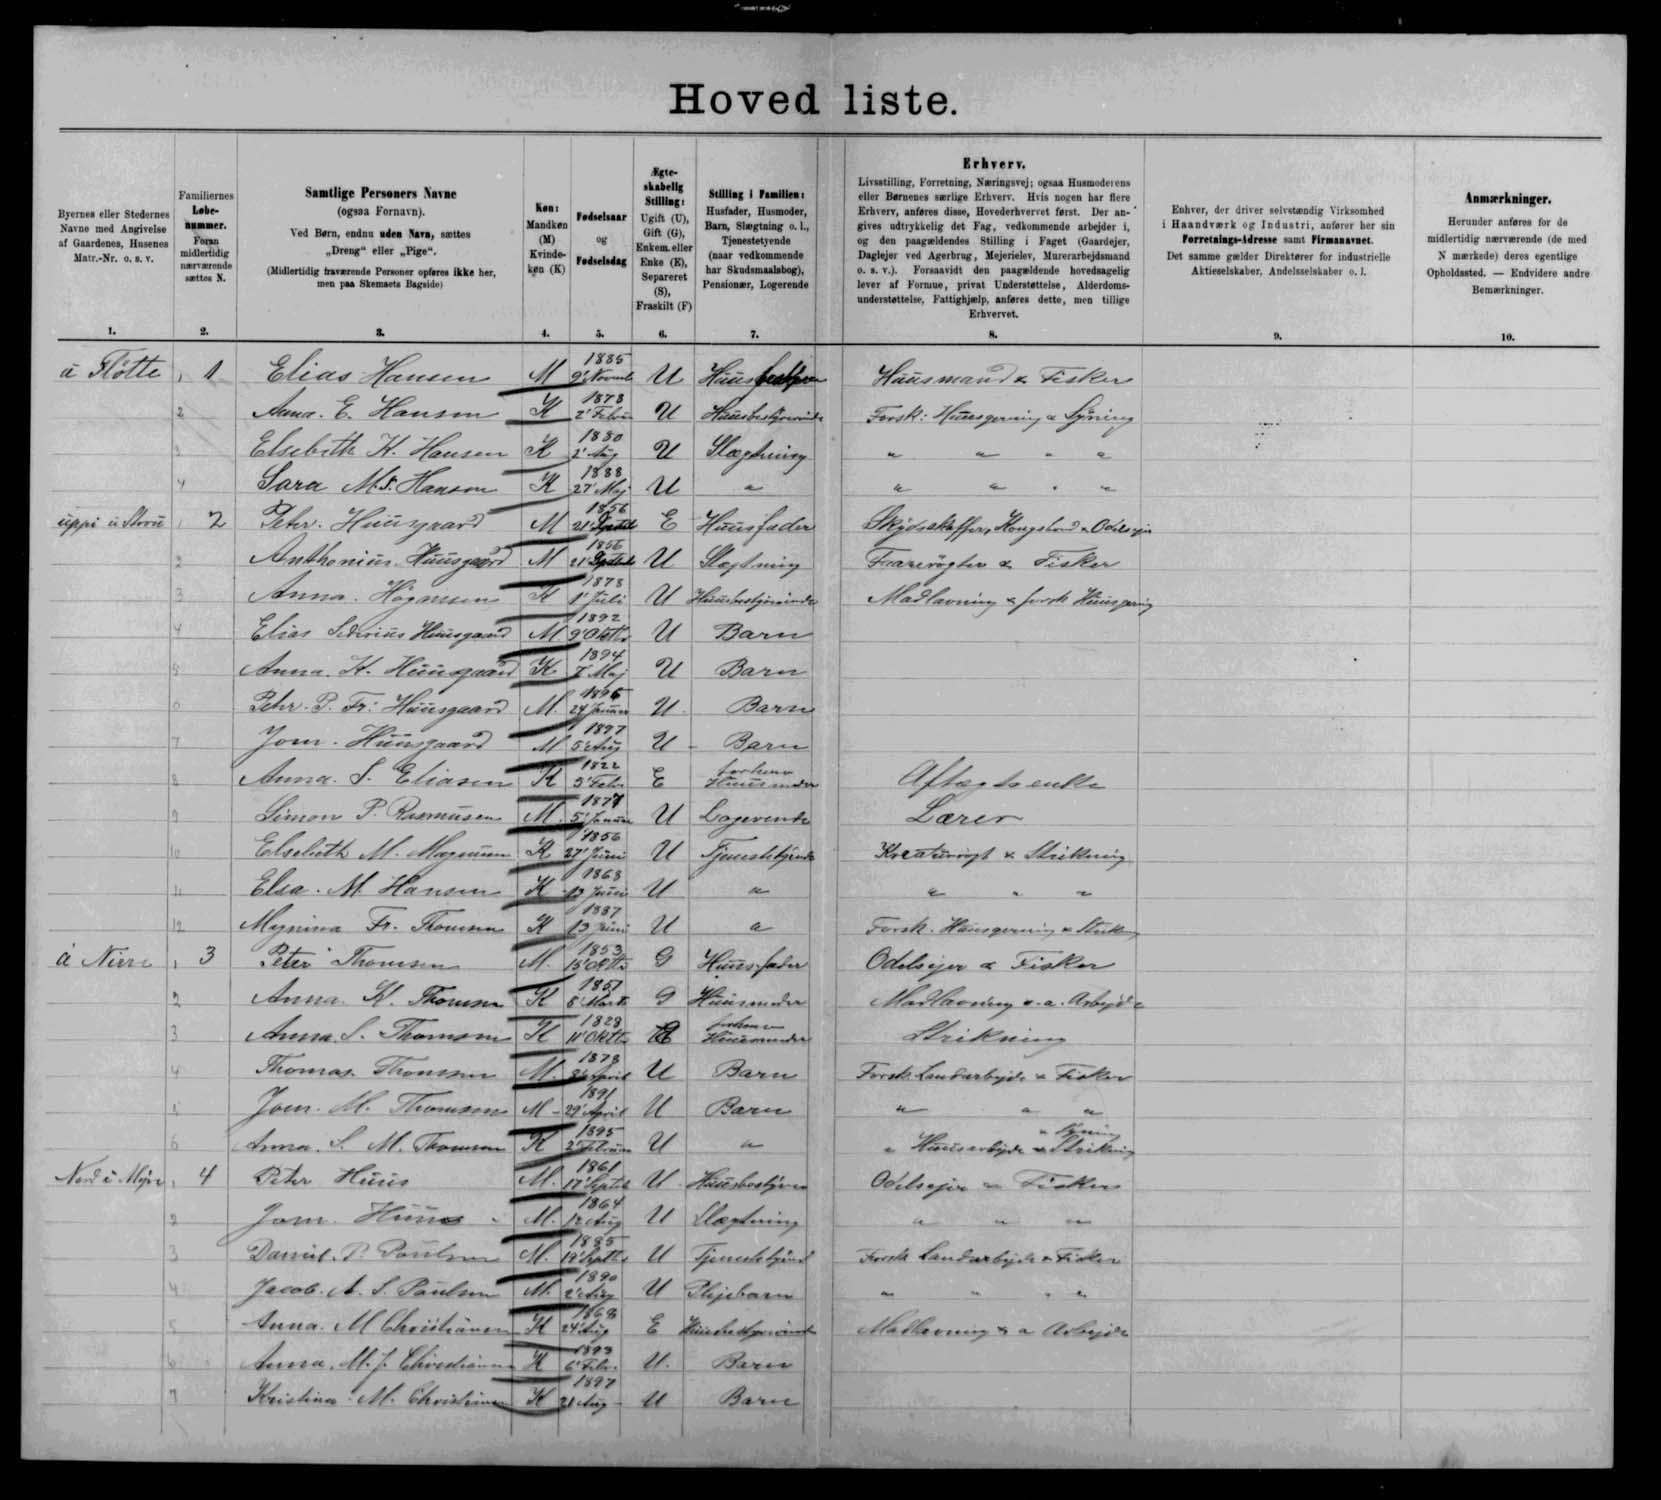 Hoved liste.
Byernes eller Stedernes Navne med Angivelse af Gaardenes, Husenes Matr.-Nr. o. s. v.
Familiernes Løbenummer. Foran midlertidig nærværende sættes N.
Samtlige Personers Navne (ogsaa Fornavn). Ved Børn, endnu uden Navn, sættes „Dreng“ eller „Pige“. (Midlertidig fraværende Personer opføres ikke her, men paa Skemaets Bagside)
Køn: Mandkøn (M) Kvindekøn (K)
Fødselsaar og Fødselsdag
Ægteskabelig Stilling: Ugift (U), Gift (G), Enkem. eller Enke (E), Separeret (S), Fraskilt (F)
Stilling i Familien: Husfader, Husmoder, Barn, Slægtning o. l., Tjenestetyende (naar vedkommende har Skudsmaalsbog), Pensionær, Logerende
Erhverv. Livsstilling, Forretning, Næringsvej; ogsaa Husmoderens eller Børnenes særlige Erhverv. Hvis nogen har flere Erhverv, anføres disse, Hovederhvervet først. Der angives udtrykkelig det Fag, vedkommende arbejder i, og den paagældendes Stilling i Faget (Gaardejer, Daglejer ved Agerbrug, Mejerielev, Murerarbejdsmand o. s. v.). Forsaavidt den paagældende hovedsagelig lever af Formue, privat Understøttelse, Alderdomsunderstøttelse, Fattighjælp, anføres dette, men tillige Erhvervet.
Enhver, der driver selvstændig Virksomhed i Haandværk og Industri, anfører her sin Forretnings-Adresse samt Firmanavnet. Det samme gælder Direktører for industrielle Aktieselskaber, Andelsselskaber o. l.
Anmærkninger. Herunder anføres for de midlertidig nærværende (de med N mærkede) deres egentlige Opholdssted. — Endvidere andre Bemærkninger.
1. 2. 3. 4. 5. 6. 7. 8. 9. 10.
á Fløtte 1 Elias Hansen M 1885 9' U Huus Huusmand & Fisker
2 Anna. E. Hansen K 1878 2' U Huusbestyrerinde Forsk: Huusgerning & Syning
3 Elsebith K. Hansen K 1880 2' Aug U Slægtning " " " "
4 Sara M. Hansen K 1888 27' Maj U " " " " "
uppi 2 Peter. Huusgaard M 1856 21' E Huusfader Skydsskaffer, Kongsbond & Odelsejer
2 Anthonius. Huusgaard M 1856 21' U Slægtning Faarerøgter & Fisker
3 Anna. K 1878 1' Juli U Huusbestyrerinde Madlavning & forsk Huusgerning
4 Elias Huusgaard M 1892 9' Oktb U Barn
5 Anna. K. Huusgaard K 1894 Maj U Barn
6 Peter. P. Fr: Huusgaard M. 24' Januar U. Barn
7 Joen. Huusgaard M 1897 5' Aug U - Barn
8 Anna. S. Eliasen K 1822 5' Febr E forhenv Huusmoder Aftægtsenke
9 Simon P. Rasmusen M. 5' Januar U Logerende Lærer
10 Elsebeth M. K 1856 27' Juni U Tjenestetyende Kreaturrøgt & Strikning
11 Elsa. M Hansen K 1868 13 U " " " "
12 Fr. Thomsen K 1887 13 Juni U " Forsk. Huusgerning & Strikning
á 3 Peter Thomsen M. 1853 15' Oktb G Huusfader Odelsejer & Fisker
2 Anna. K. Thomsen K 8 Marts G Huusmoder Madlavning o. a. Arbejde
3 Anna. S. Thomsen K 1828 11' Oktb forhenv Huusmoder Strikning
4 Thomas. Thomsen M. 1878 April U Barn Forsk. Landarbejde & Fisker
5 Joen. M. Thomsen M - 1891 29' April U Barn " " "
6 Anna. S. M. Thomsen K 1895 2' Februar U " " Huusarbejde & Strikning & Syning
Nord i Mýre 4 Peter Huus M. 1861 17' Septb U. Huusbestyrer Odelsejer & Fisker
2 Joen. Huus M. 1864 12 Aug U Slægtning " " "
3 Daniel. P. Poulsen M. 1885 19' Septb U Tjenestetyende Forsk Landarbejde & Fisker
4 Jacob. A. S. Poulsen M. 1890 2' Aug U Plejebarn " " " "
5 Anna. M Christiansen K 1868 24' Aug E Huusbestyrerinde Madlavning & a Arbejde
6 Anna. M. J. Christiansen K 1893 6' Febr. U. Barn
7 Kristina. M. Christiansen K 1897 21 Aug - U Barn